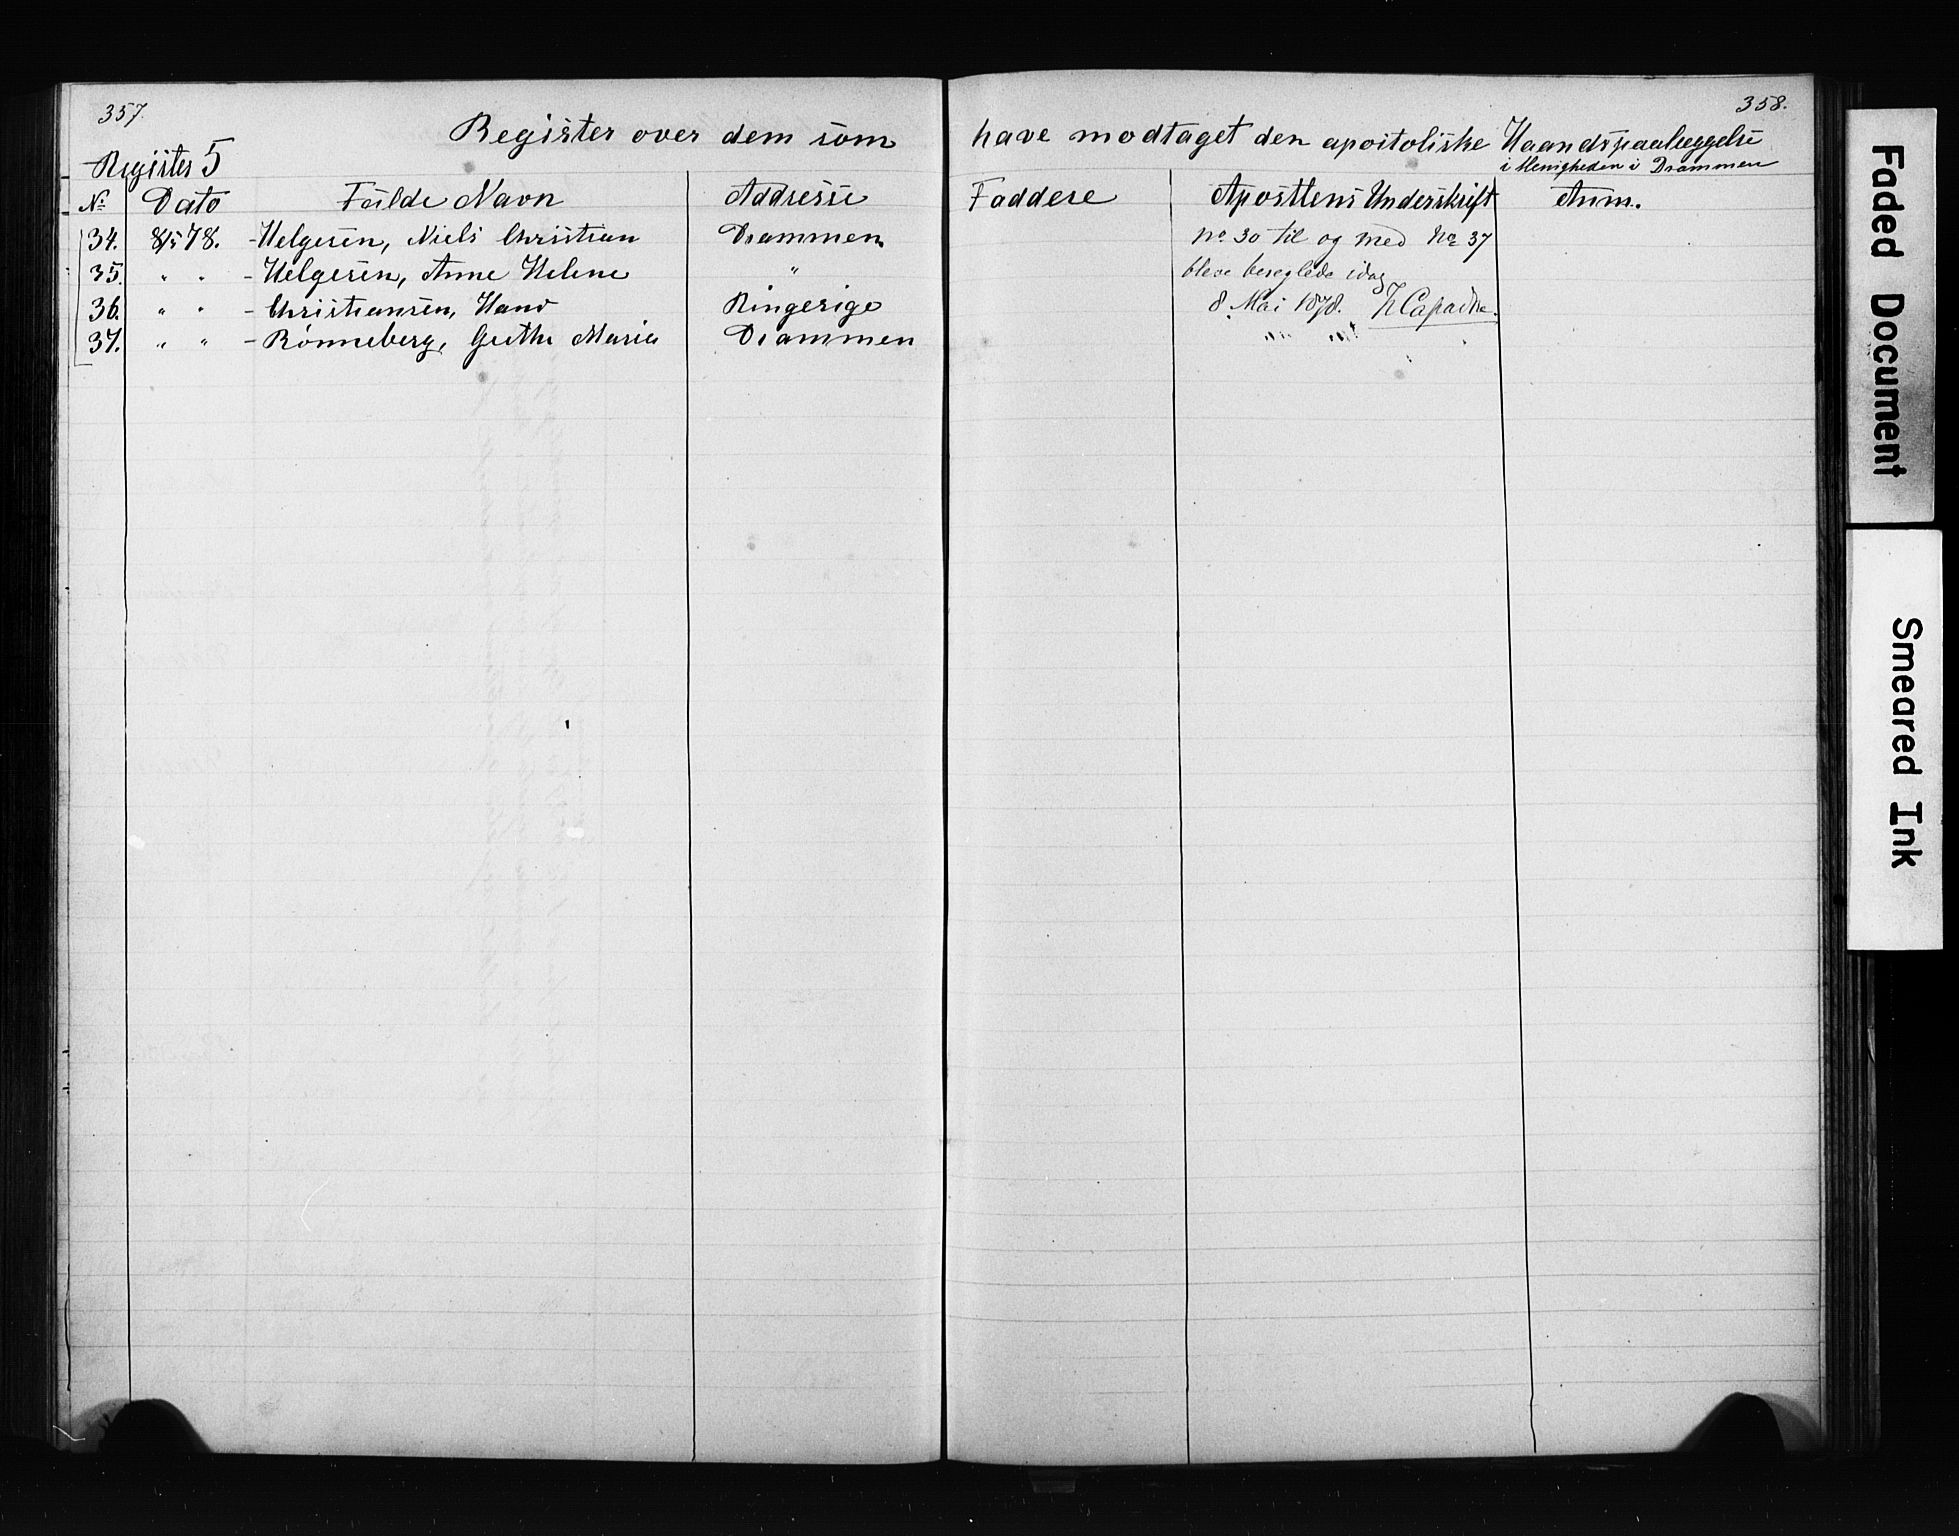 357.
358.
Register over dem som have modtaget den apostoliske Haandspaalæggelse
i Menigheden i Drammen
Register 5
No Dato Fulde Navn Addresse Faddere Apostlens Underskrift Anm.
34. 8/5 78. - Helgesen, Niels Christian Drammen
35. " " - Helgesen, Anne Helene "
36. " " - Christiansen, Hans Ringerige
37. " " - Rönneberg, Grethe Maria Drammen
No 30 til og med No 37
bleve beseglede idag
8. Mai 1878. Capadose.
Faded Document
Smeared Ink